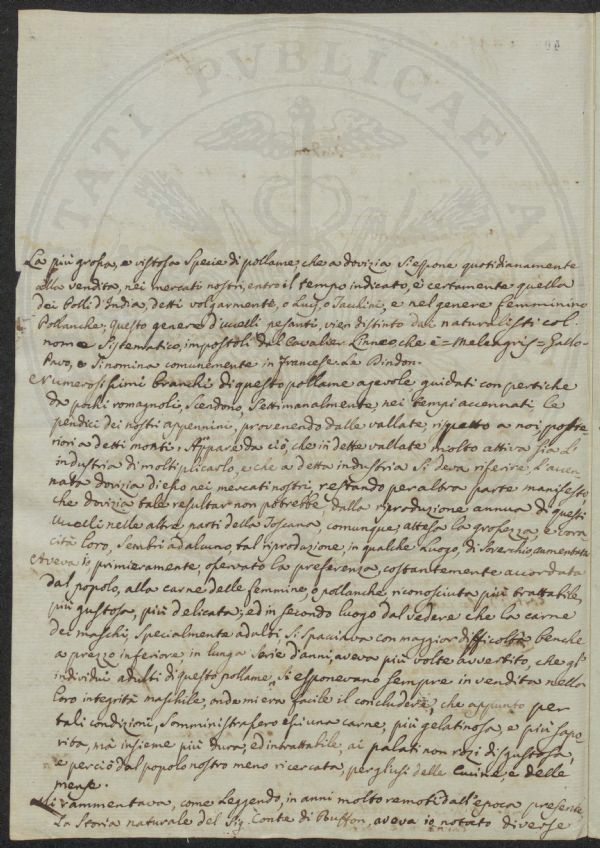 La più grossa, e vistosa Specie di pollame, che a dovizia si espone quotidianamente
alla vendita, nei mercati nostri, entro il tempo indicato, è certamente quella
dei Polli d'India, detti volgarmente, o Lucj, o Tacchini, e nel genere Femminino
Pollanche; Questo genere d'uccelli pesanti, vien distinto dai naturalisti col
nome Sistematico, impostoli dal Cavalier Linneo che è = Meleagris = Gallo-
Pavo, e si nomina comunemente in Francese. Le Dindon.
Numerosissimi branchi di questo pollame agevole guidati con pertiche
da pochi romagnoli, Scendono, Settimanalmente, nei tempi accennati le
pendici dei nostri appennini, provenendo dalle vallate, rispetto a noi poste-
riori a detti monti; Appare da ciò, che in dette vallate molto attiva sia l'
industria di moltiplicarlo, e che a detta industria si deva riferire, l'accen-
nata dovizia di esso nei mercati nostri; restando per altra parte manifesto
che dovizia tale resultar non potrebbe dalla riproduzione annua di questi
Uccelli nelle altre parti della Toscana, comunque, attesa la grossezza, e vora-
cità loro, sembri ad alcuno, tal riproduzione, in qualche luogo, di soverchio aumentata
Aveva io primieramente, osservato la preferenza, costantemente accordata
dal popolo, alla carne delle femmine, o pollanche, riconosciuta più trattabile,
più gustosa, più delicata; ed in secondo luogo dal vedere che la carne
dei maschi, specialmente adulti, si spacciava con maggior difficoltà benche
a prezzo inferiore in lunga serie d'anni, aveva più volte avvertito, che gl'
individui adulti di questo pollame, si esponevano sempre in vendita nella
loro integrità maschile, onde mi era facile il concludere, che appunto per
tali condizioni, somministrassero essi una carne, più gelatinosa, e più sapo-
rita, ma insieme più dura, ed intrattabile, ai palati non rozi disgustosa,
e perciò dal popolo nostro meno ricercata, per gl'usi delle Cucine, e delle
mense.
Mi rammentava, come Leggendo, in anni molto remoti dall'epoca presente
La Storia naturale del Sig. Conte di Buffon, aveva io notato diverse